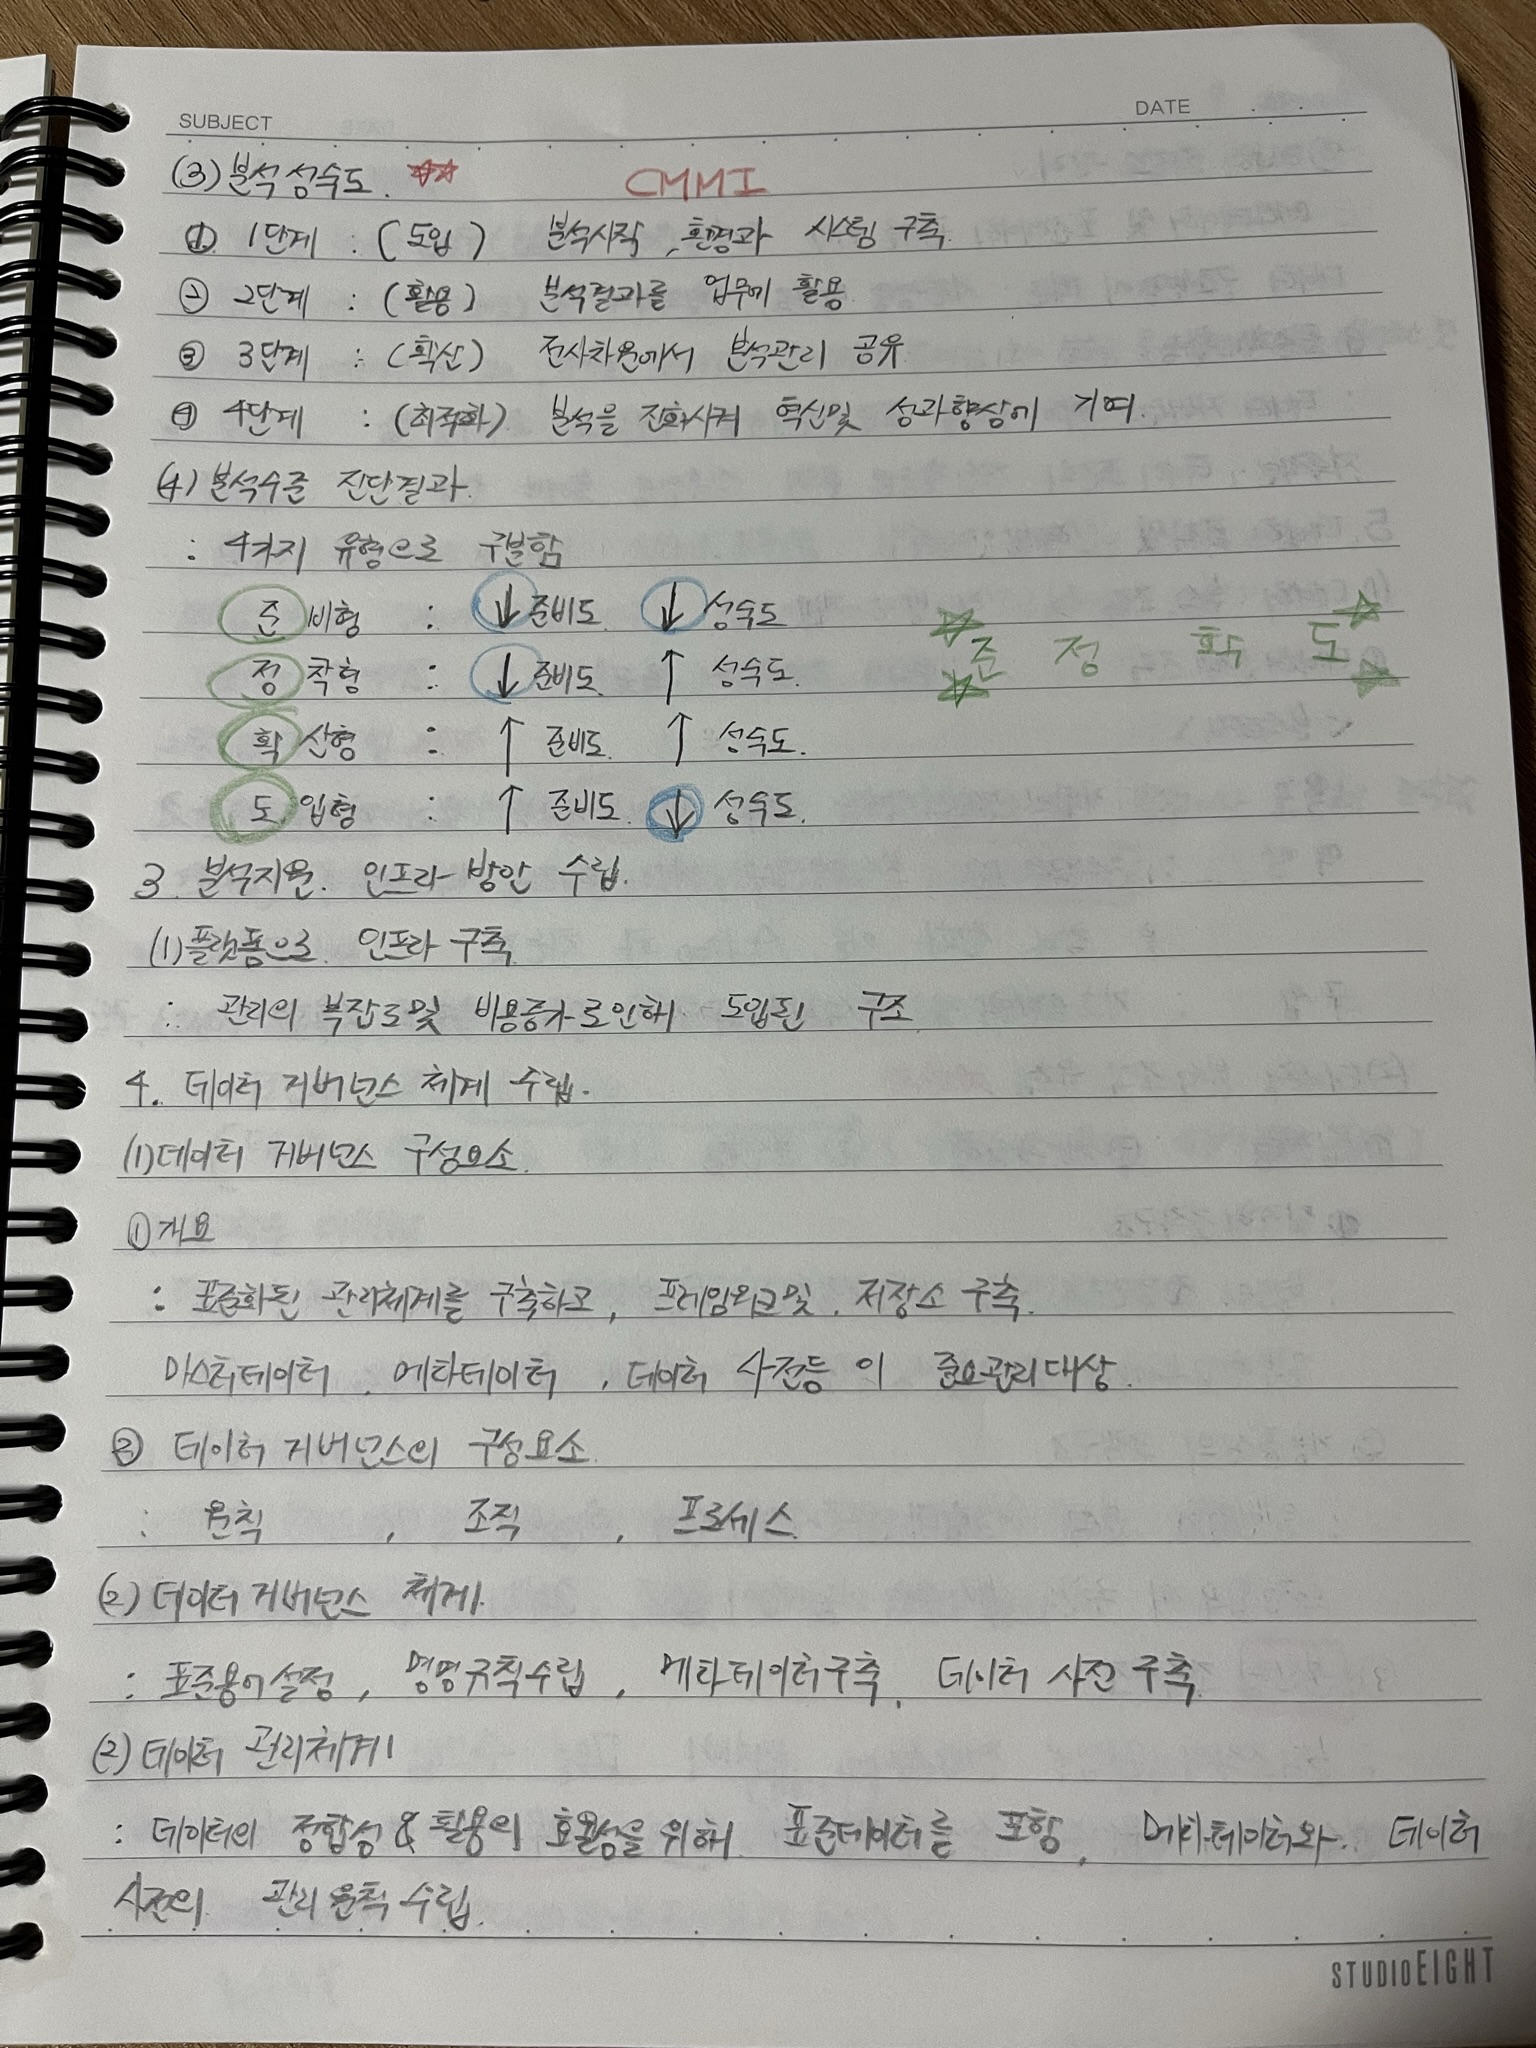 SUBJECT
DATE
(3) 분석 성숙도. ☆☆ CMMI
① 1단계 : (도입) 분석시작, 환경과 시스템 구축.
② 2단계 : (활용) 분석결과를 업무에 활용
③ 3단계 : (확산) 전사차원에서 분석관리 공유.
④ 4단계 : (최적화) 분석을 진화시켜 혁신및 성과향상에 기여.
(4) 분석수준 진단결과.
: 4가지 유형으로 구분함
준비형 : ↓ 준비도. ↓ 성숙도
정착형 : ↓ 준비도. ↑ 성숙도.
☆☆ 준 정 확 도 ☆☆
확산형 : ↑ 준비도. ↑ 성숙도.
도입형 : ↑ 준비도. ↓ 성숙도.
3. 분석지원. 인프라 방안 수립.
(1) 플랫폼으로 인프라 구축
: 관리의 복잡도및 비용증가로인해 도입된 구조
4. 데이터 거버넌스 체계 수립.
(1) 데이터 거버넌스 구성요소.
① 개요
: 표준화된 관리체계를 구축하고, 프레임워크및. 저장소 구축.
마스터데이터, 메타데이터, 데이터 사전등 이 중요관리대상.
② 데이터 거버넌스의 구성요소.
: 원칙, 조직, 프로세스.
(2) 데이터 거버넌스 체계.
: 표준용어 설정, 명명규칙수립, 메타데이터구축, 데이터 사전 구축.
(2) 데이터 관리체계
: 데이터의 정합성 & 활용의 효율성을 위해 표준데이터를 포함, 메타데이터와. 데이터
사전의 관리 원칙 수립.
STUDIO EIGHT